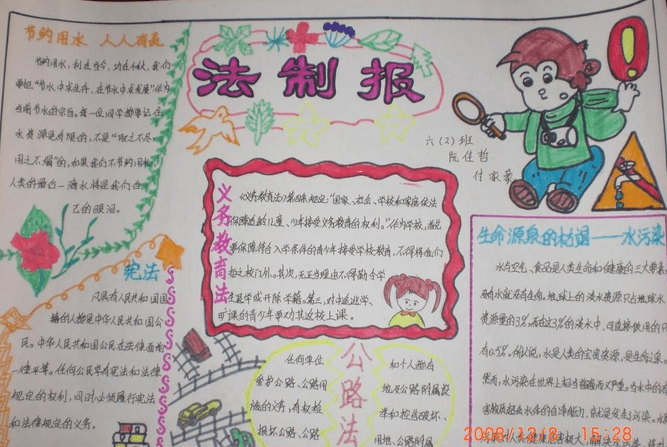 节约用水 人人有责
节约用水,利在当今,功在千秋,我们
要把“节水中求生存,在节水中求发展”作为
当前节水的宗旨。每一位同学都要记住
水资源是有限的,不是“取之不尽
用之不竭”的,如果我们不节约用水,
人类的最后一滴水将是我们自
己的眼泪。
法制报
六(2)班
阮佳哲
付家豪
义务教育法
《义务教育法》第四条规定:“国家、社会、学校和家庭依法
保障适龄儿童、少年接受义务教育的权利。”作为学校,首先
要保障符合入学条件的青少年接受学校教育,不得将他们
拒之校门外。其次,无正当理由不得勒令学
生退学或开除学籍。第三,对中途退学、
旷课的青少年要动其返校上课。
宪法
凡具有人民共和国国
籍的人都是中华人民共和国公
民。中华人民共和国公民在法律面前
一律平等。任何公民享有宪法和法律
规定的权利,同时必须履行宪法
和法律规定的义务。
公路法
任何单位
爱护公路、公路用
施的义务,有权检
损坏公路、公路
和个人都有
地及公路附属设
举和控告破坏、
用地、公路附属
生命源泉的枯竭——水污染
水与空气、食品是人类生命和健康的三大要素
没有水就没有生命。地球上的淡水资源只占地球水
资源量的3%,而在这3%的淡水中,可直接饮用的只
有0.5%。所以说,水是人类的宝贵资源,是生命之泉。
然而,水污染在世界上相当普遍而又严重。当水中的
害物质超出水体的自净能力,就是发生了污染。
2008/12/8 15:28